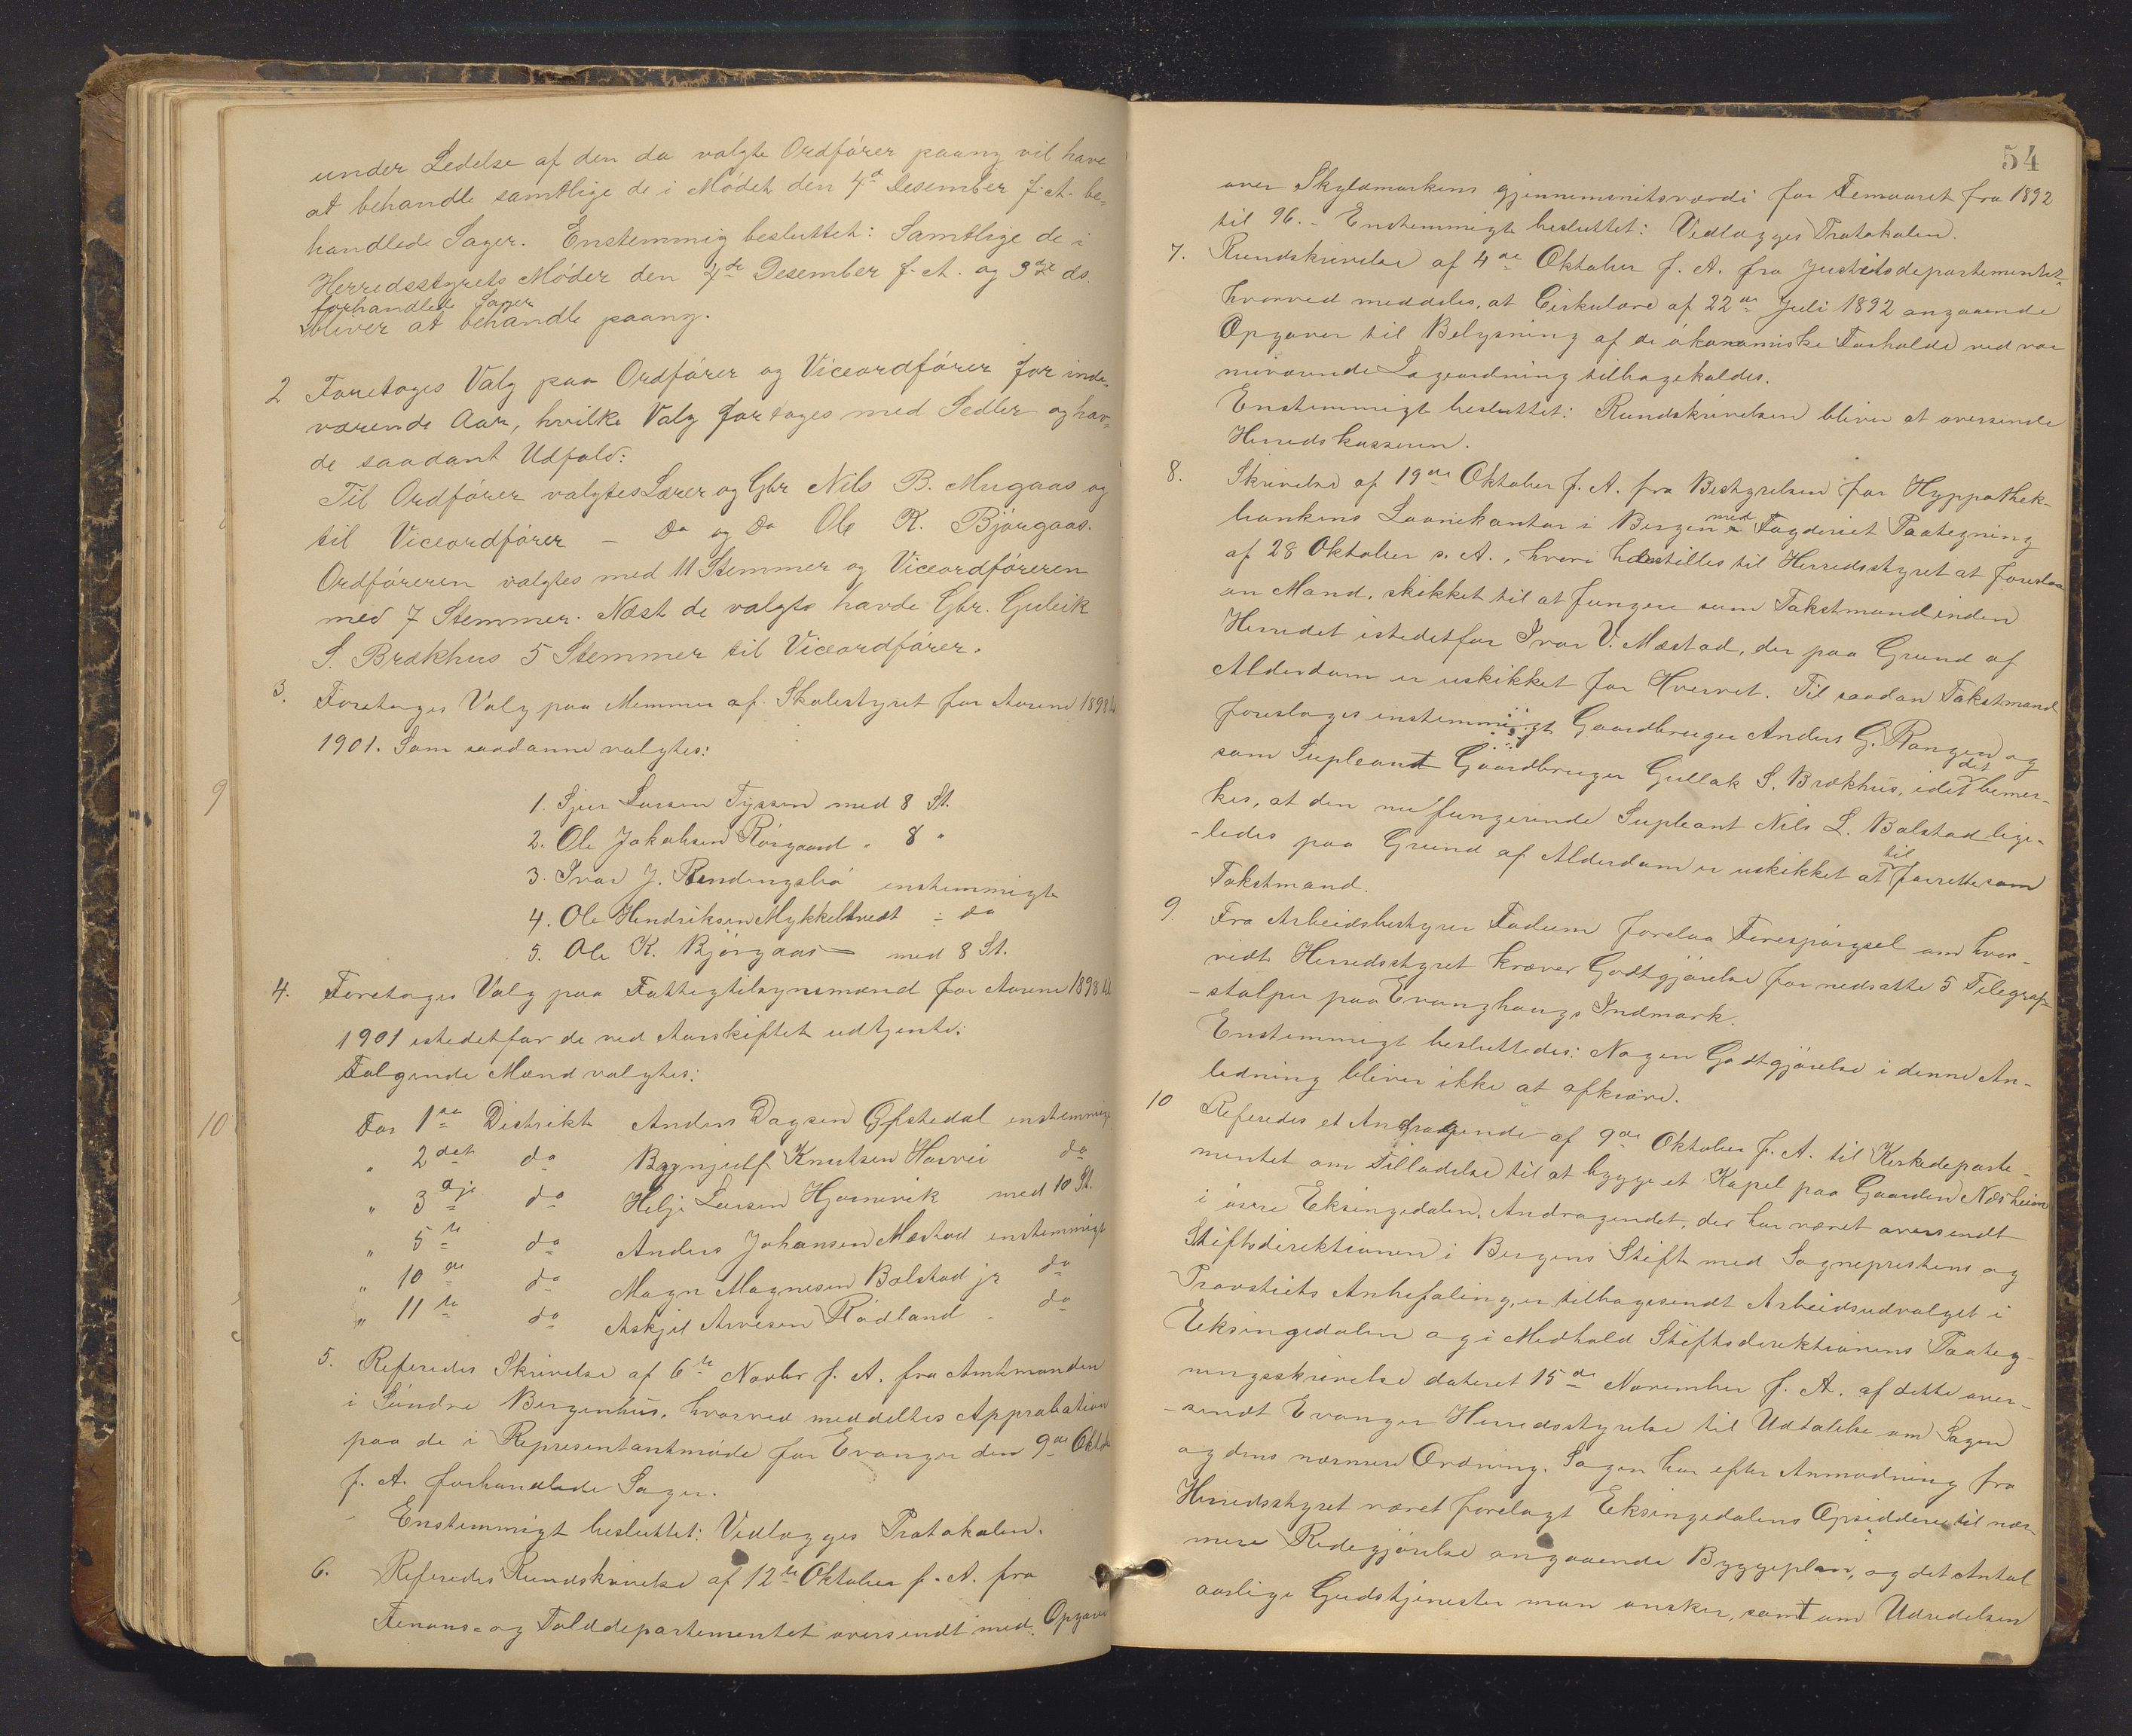 under Ledelse af den da valgte Ordfører paany vil have
at behandle samtlige de i Mødet den 4de Desember f. A. be=
handlede Sager. Enstemmig besluttet: Samtlige de i
Herredsstyrets Møder den 4de Desember f. A. og 3dje ds.
forhandlede Sager
bliver at behandle paany.
2 Foretoges Valg paa Ordfører og Viceordfører for inde=
værende Aar, hvilke Valg foretoges med Sedler og hav=
de saadant Udfald:
Til Ordfører valgtes Lærer og Gbr Nils B. Mugaas og
til Viceordfører – Do og Do Ole K. Bjørgaas.
Ordføreren valgtes med 11 Stemmer og Viceordføreren
med 7 Stemmer. Næst de valgte havde Gbr. Guleik
S. Brækhus 5 Stemmer til Viceordfører.
3. Foretoges Valg paa Memmer af Skolestyret for Aarene 1898 til
1901. Som saadanne valgtes:
1. Sjur Larsen Tyssen med 8 St.
9
2. Ole Jakobsen Rørgaard " 8 "
3. Ivar J. Rendingsbø enstemmigt
4. Ole Hendriksen Mykkeltvedt - do
5. Ole K. Bjørgaas – med 8 St.
4. Foretoges Valg paa Fattigtilsynsmænd for Aarene 1898 til
1901 istedetfor de ved Aarskiftet udtjente:
Følgende Mænd valgtes:
10
For 1ste Distrikt Anders Dagsen Gfstedal enstemmig
" 2det do Brynjulf Knutsen Horvei do
" 3dje do Helje Larsen Hjørnevik med 10 St.
" 5te do Anders Johansen Mæstad enstemmigt
" 10de do Magne Magnesen Bolstad jr do
" 11te do Askjel Arvesen Rødland - do
5. Referedes Skrivelse af 6te Novbr f. A. fra Amtmanden
i Søndre Bergenhus, hvorved meddeltes Approbation
paa de i Representantmøde for Evanger den 9de Oktob
f. A. forhandlede Sager.
Enstemmigt besluttet: Vedlægges Protokolen.
6. Referedes Rundskrivelse af 12te Oktober f. A. fra
Finans- og Tolddepartementet oversendt med Opgaver
54
over Skyldmarkens gjennemsnitsværdi for Femaaret fra 1892
til 96. – Enstemmigt besluttet: Vedlægges Protokolen.
7. Rundskrivelse af 4de Oktober f. A. fra Justitsdepartementet
hvorved meddeles, at Cirkulære af 22de Juli 1892 angaaende
Opgaver til Belysning af de økonomiske Forholde ved vor
nuværende Lægeordning tilbagekaldes.
Enstemmigt besluttet: Rundskrivelsen bliver at oversende
Herredskasseren.
8. Skrivelse af 19de Oktober f. A. fra Bestyrelsen for Hyppothek-
bankens Laanekontor i Bergen med Fogderiet Paategning
af 28 Oktober s. A., hvori henstilles til Herredsstyret at foreslaa
en Mand, skikket til at fungere som Takstmand inden
Herredet istedetfor Ivar V. Mæstad, der paa Grund af
Alderdom er uskikket for Hvervet. Til saadan Takstmand
foreslages enstemmigt Gaardbruger Anders G. Rongen og
som Supleant Gaardbruger Gullak S. Brækhus, idet det bemer-
kes, at den nu fungerende Supleant Nils L. Bolstad lige-
-ledes paa Grund af Alderdom er uskikket at til forrette som
Takstmand.
9. Fra Arbeidsbestyrer Fadum forelaa Forespørgsel om hvor-
vidt Herredsstyret kræver Godtgjørelse for nedsatte 5 Telegraf-
-stolper paa Evanghaugs Indmark.
Enstemmigt besluttedes: Nogen Godtgjørelse i denne An-
ledning bliver ikke at afkræve.
10 Referedes et Andragende af 9de Oktober f. A. til Kirkedeparte-
mentet om Tilladelse til at bygge et Kapel paa Gaarden Næsheim
i øvre Eksingedalen. Andragendet, der har været oversendt
Stiftsdirektionen i Bergens Stift med Sogneprestens og
Provstiets Anbefaling, er tilbagesendt Arbeidsudvalget i
Eksingedalen og i Medhold Stiftsdirektionens Paateg-
ningsskrivelse dateret 15de November f. A. af dette over-
-sendt Evanger Herredsstyrelse til Udtalelse om Sagen
og dens nærmere Ordning. Sagen har efter Anmodning fra
Herredsstyret været forelagt Eksingedalens Opsiddere til nær-
mere Redegjørelse angaaende Byggeplan, og det Antal
aarlige Gudstjenester man ønsker, samt om Udredelsen